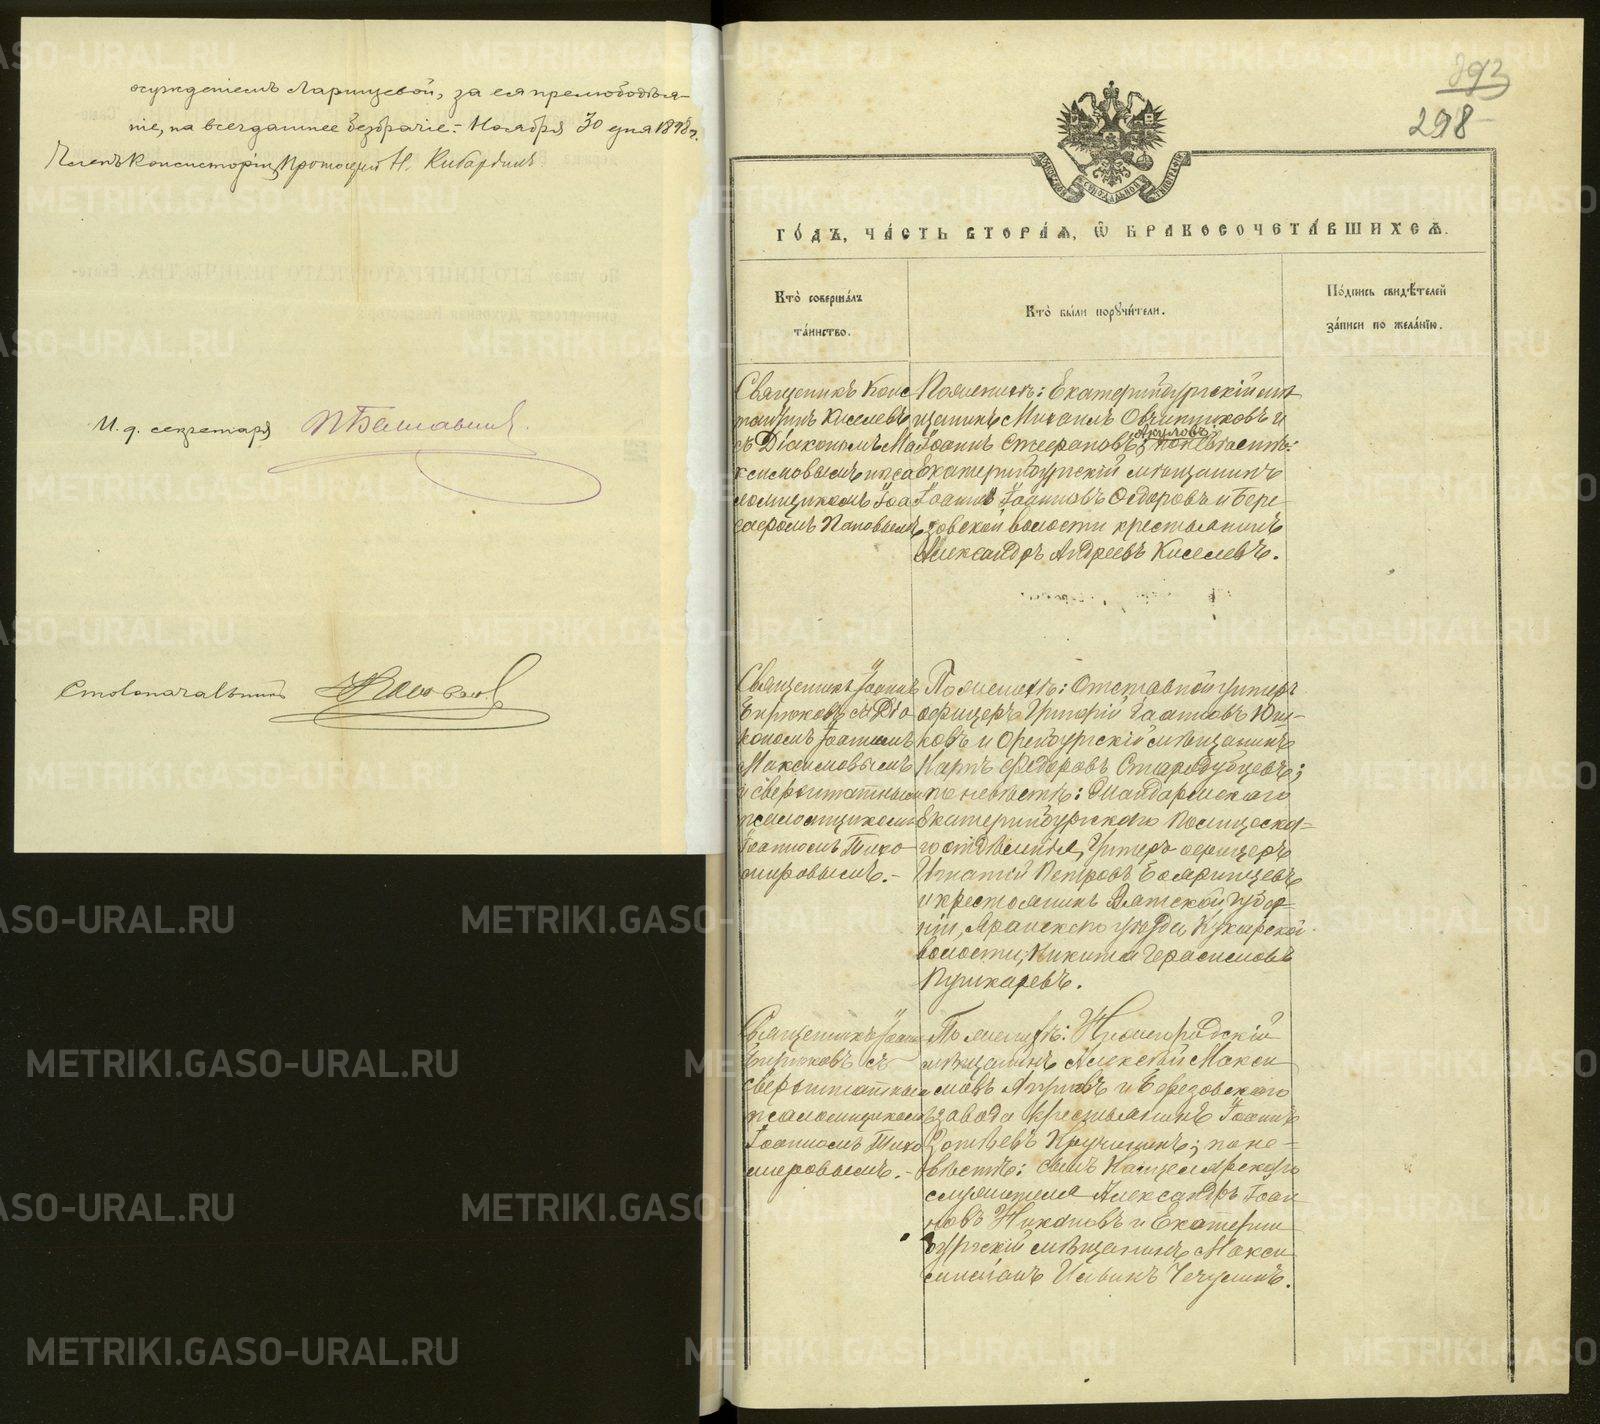 осужденіемъ Ларинцевой, за ея прелюбодѣя-
ніе, на всегдашнее безбрачіе. Ноября 30 дня 1898 г.
Членъ Консисторіи, Протоіерей Н.
И. д. секретаря
Столоначальникъ
293
298
ГО́ДЪ, ЧА́СТЬ ВТОРА́Ѧ, Ѽ БРАКОСОЧЕТА́ВШИХСѦ.
Кто̀ соверша́лъ
та́инство.
Кто̀ бы́ли порꙋчи́тели.
По́дпись свидѣ́телей
за́писи по жела́нїю.
Священникъ Конс
тантинъ Киселевъ
съ Діакономъ Ма
ксимовымъ и пса
ломщикомъ Іоа
сафомъ Поповымъ
По женихѣ: Екатеринбургскій мѣ
щанинъ Михаилъ Овчинниковъ и
Іоаннъ Стефановъ Акуловъ; по невѣстѣ:
Екатеринбургскій мѣщанинъ
Іоаннъ Іоанновъ Ѳедоровъ и Бере-
зовской волости крестьянинъ
Александръ Андреевъ Киселевъ.
Священникъ Іоаннъ
Бирюковъ съ Діа-
кономъ Іоанномъ
Максимовымъ
и сверхштатнымъ
псаломщикомъ
Іоанномъ Тихо-
мировымъ.-
По женихѣ: Отставной унтеръ
офицеръ Григорій Іоанновъ Юш-
ковъ и Оренбургскій мѣщанинъ
Карпъ Ѳедоровъ Стародубцевъ;
по невѣстѣ: Жандармскаго
Екатеринбургскаго Полицейска-
го отдѣленія, Унтеръ-офицеръ
Игнатій Петровъ Бояринцевъ
и крестьянинъ Вятской губер-
ніи, Яранскаго уѣзда, Кукарской
волости, Никита Герасимовъ
Пушкаревъ.
Священникъ Іоаннъ
Бирюковъ съ
сверхштатнымъ
псаломщикомъ
Іоанномъ Тихо
мировымъ.-
По женихѣ:
мѣщанинъ Алексѣй Макси
мовъ и Березовскаго
завода крестьянинъ Іоаннъ
Зотѣевъ Кручининъ; по не-
вѣстѣ: сынъ Канцелярскаго
служителя Александръ Іоан
новъ Никоновъ и Екатерин
бургскій мѣщанинъ Макси
миліанъ Чечулинъ.
METRIKI.GASO-URAL.RU